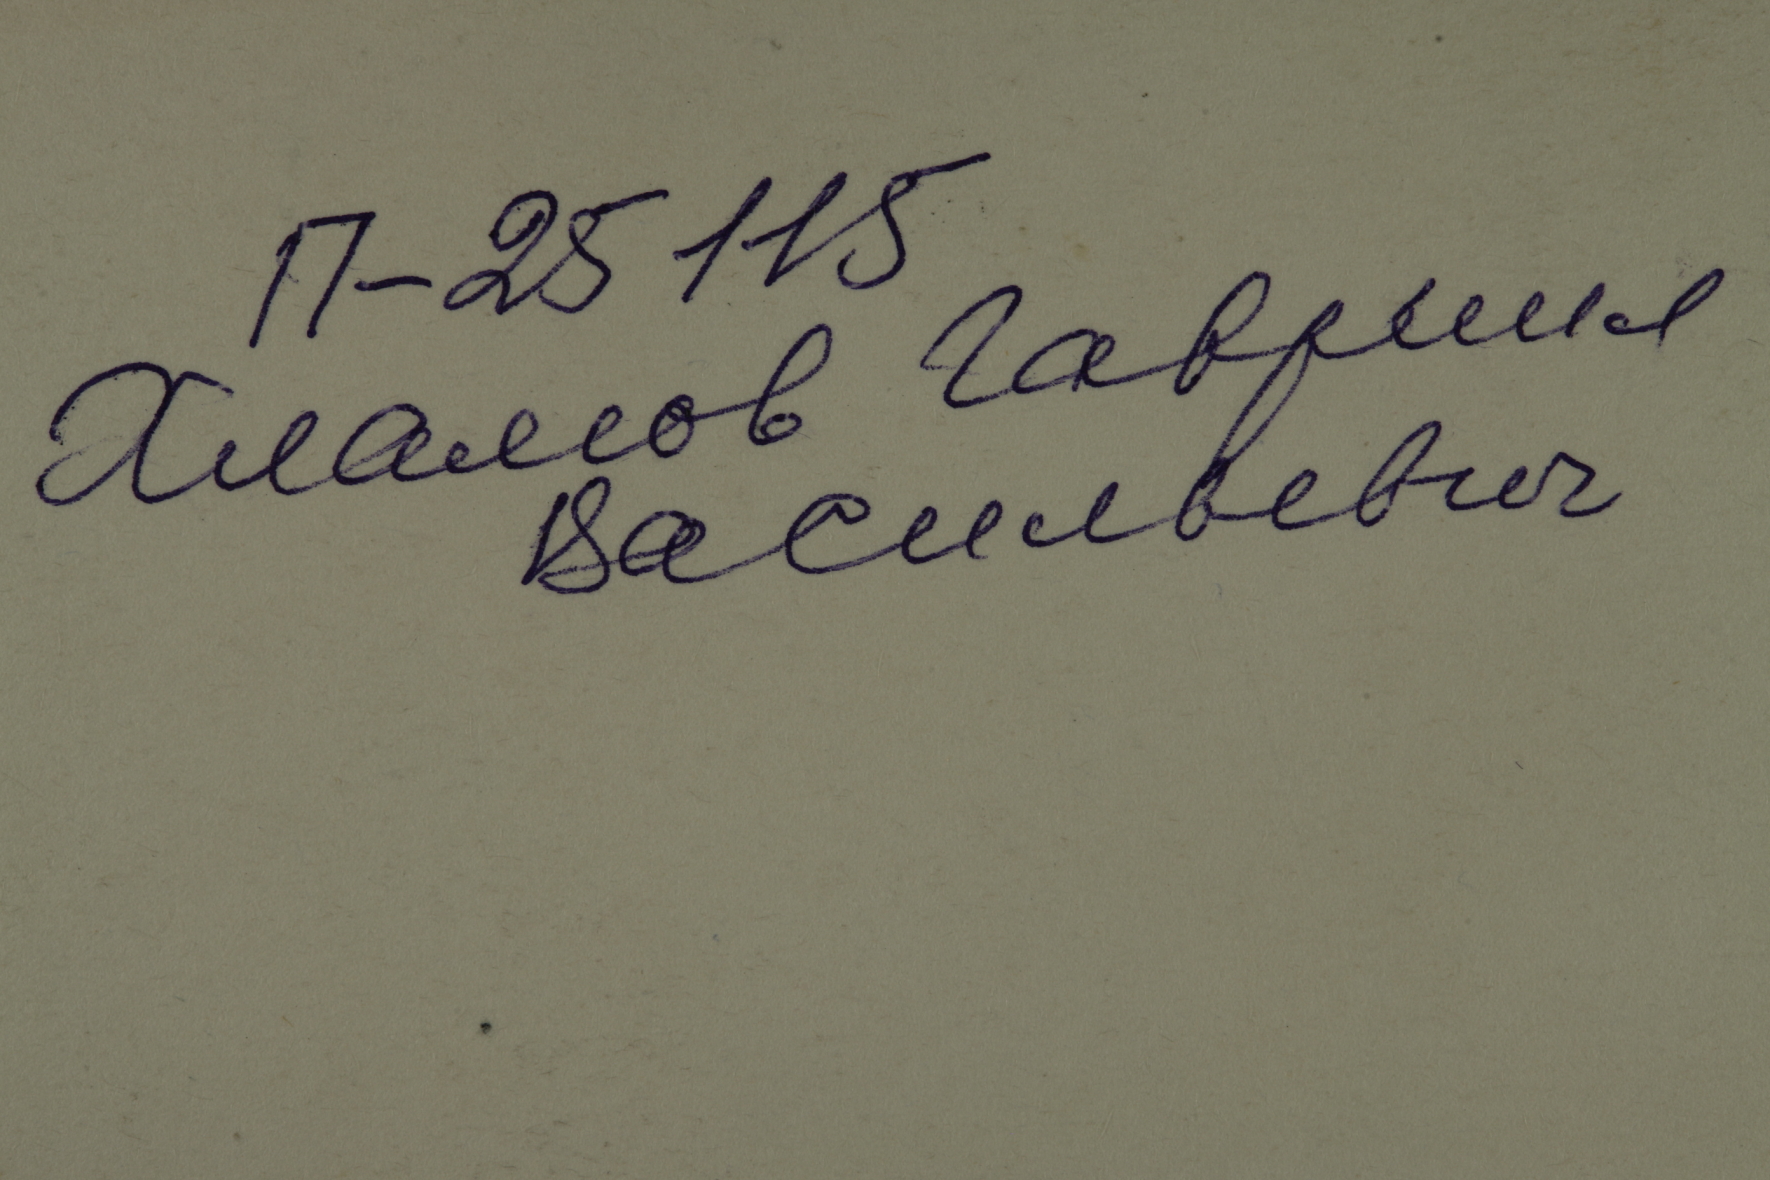 П-25115
Хламов Гавриил
Васильевич